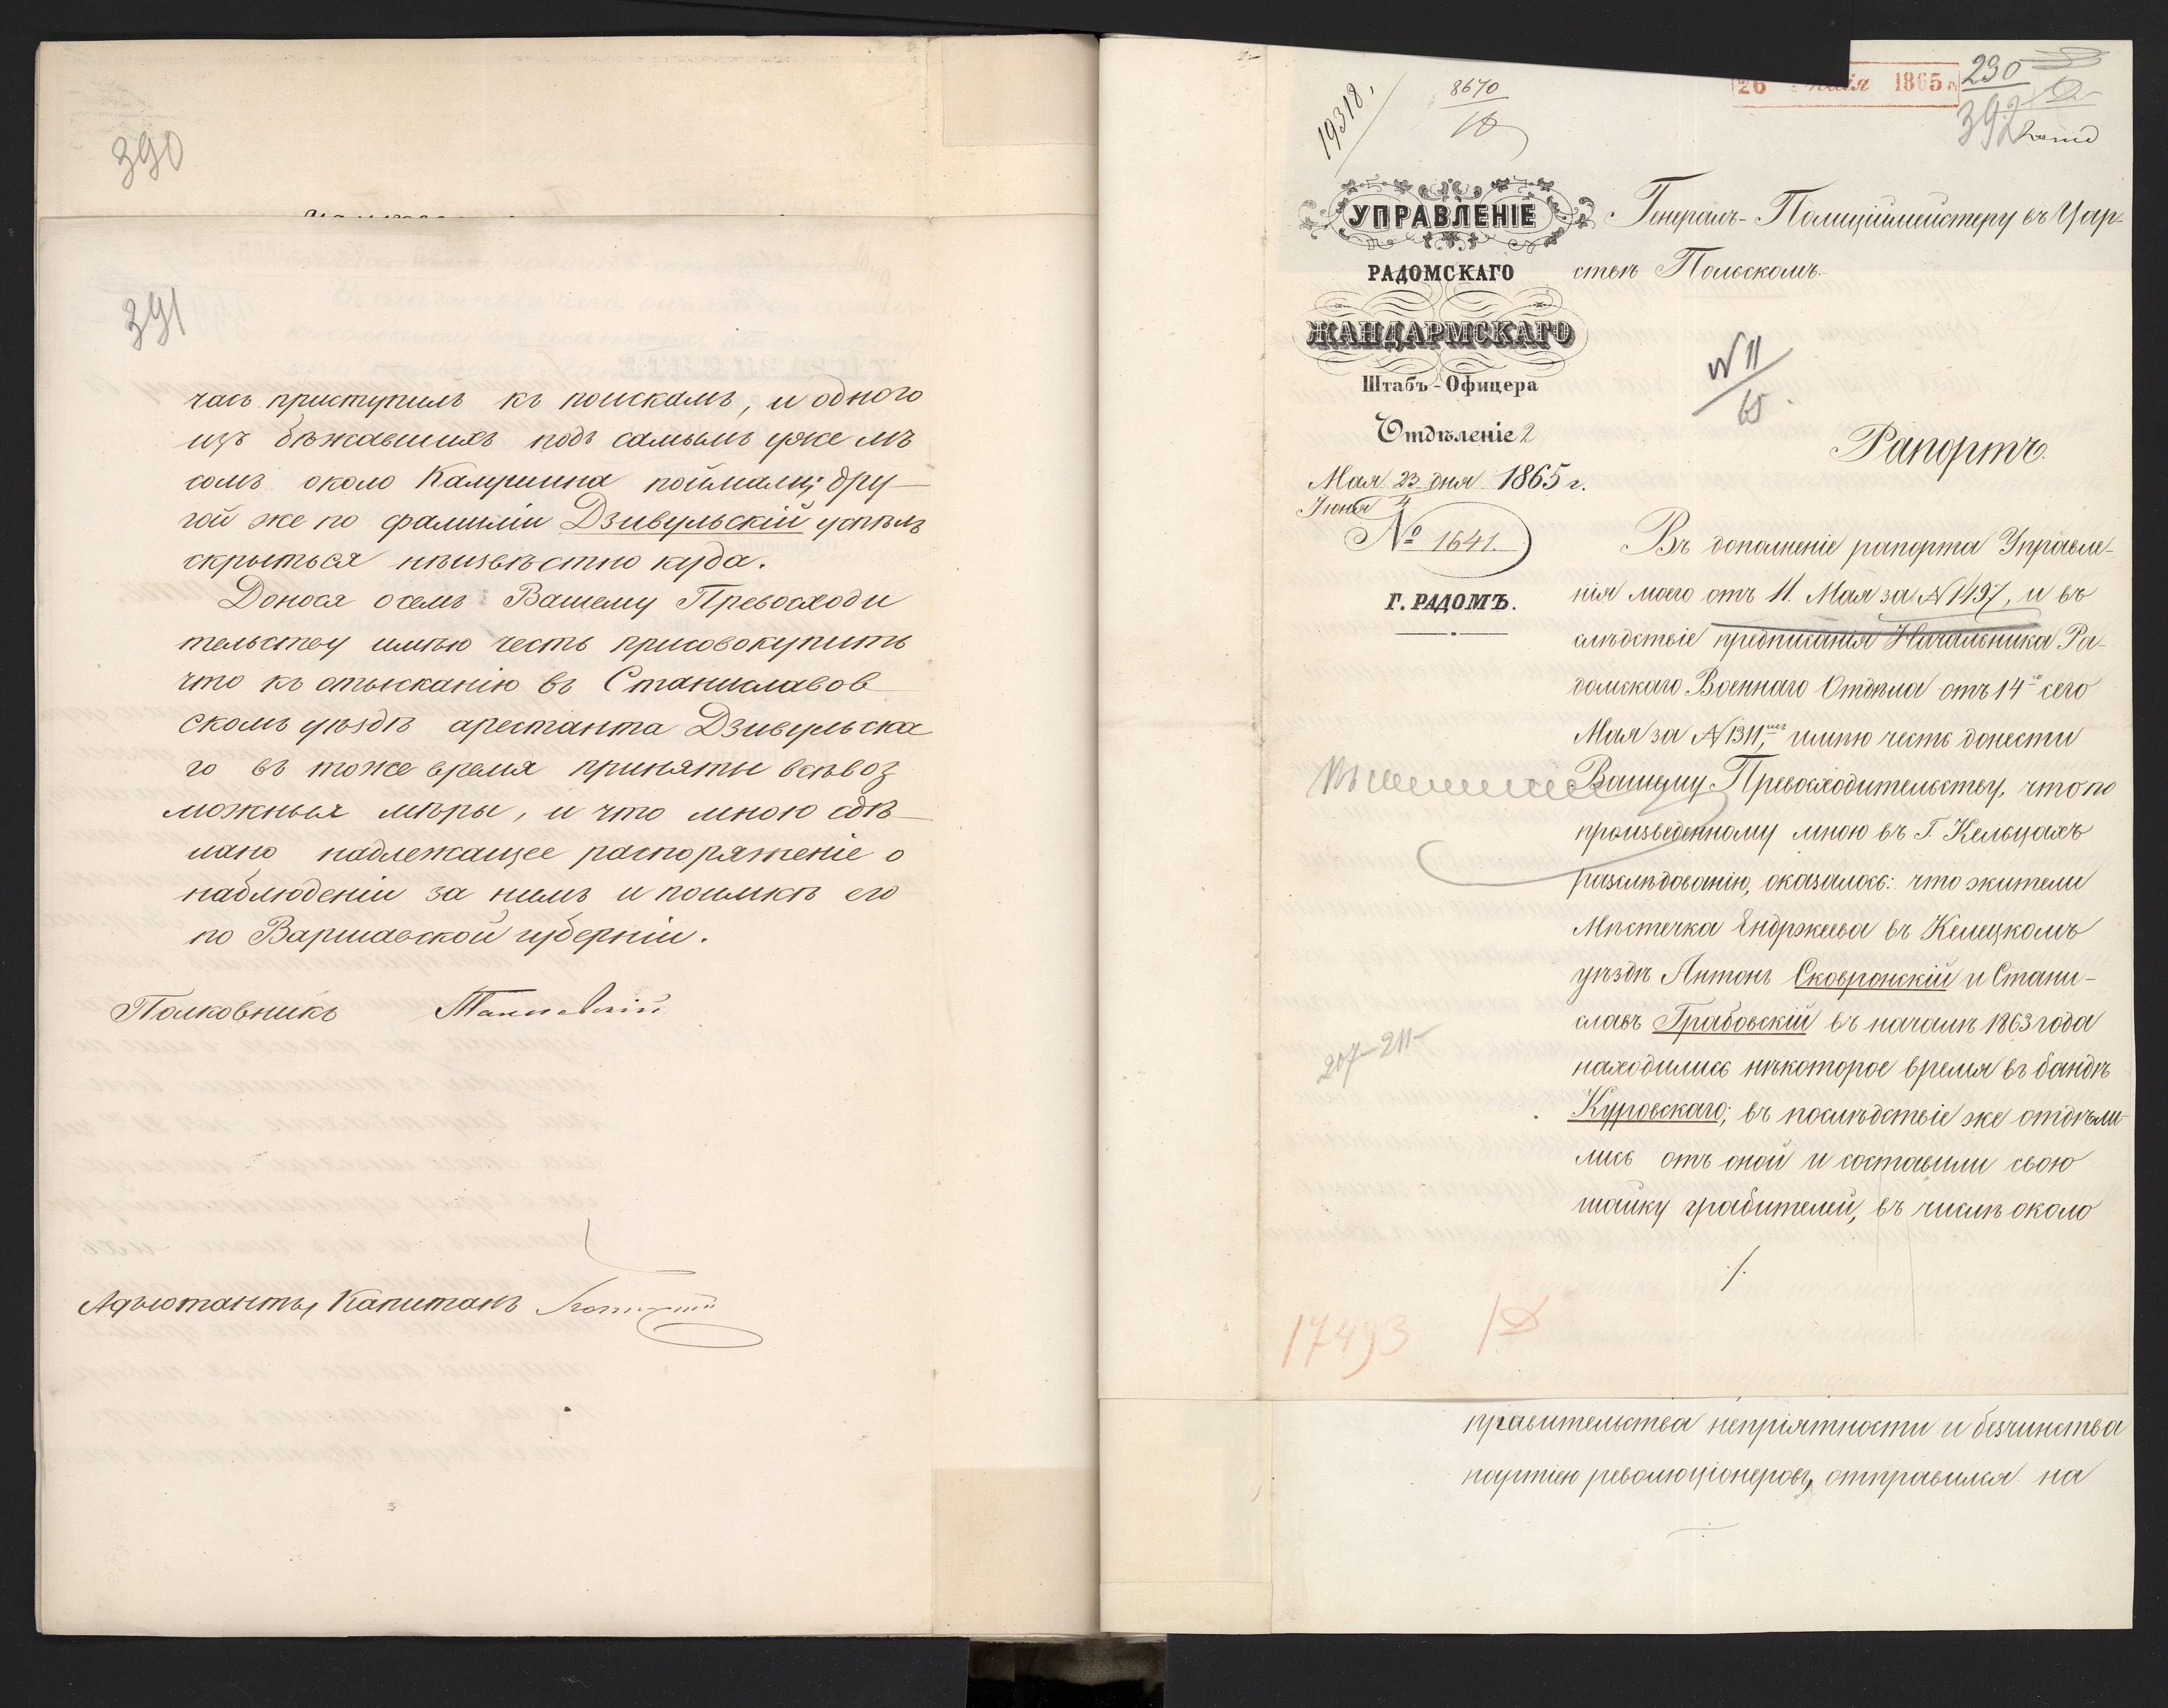 390
391
часъ приступилъ къ поискамъ, и одного
изъ бѣжавшихъ подъ самымъ уже лѣ
сомъ около Камушина поймалъ; дру-
гой же по фамиліи Дзивульскій успѣлъ
скрыться неизвѣстно куда.
Донося о семъ Вашему Превосходи
тельству имѣю честь присовокупить
что къ отысканію въ Станиславов
скомъ уѣздѣ арестанта Дзивульска
го въ тоже время приняты всевоз
можныя мѣры, и что мною сдѣ-
лано надлежащее распоряженіе о
наблюденіи за нимъ и поимкѣ его
по Варшавской губерніи.
Полковникъ
Адъютантъ, Капитанъ
19318.
8670
26 1865
230
392
УПРАВЛЕНІЕ
РАДОМСКАГО
ЖАНДАРМСКАГО
Штабъ-Офицера
Отдѣленіе 2
Мая 23 дня 1865 г.
Іюня 4
№ 1641.
Г. РАДОМЪ.
Генералъ-Полиціймейстеру въ Цар-
ствѣ Польскомъ.
N 11
65.
Рапортъ.
Въ дополненіе рапорта Управле-
нія моего отъ 11. Мая за N 1497, и въ
слѣдствіе предписанія Начальника Ра-
домскаго Военнаго Отдѣла отъ 14го сего
Мая за N 1311, имѣю честь донести
Вашему Превосходительству, что по
произведенному мною въ Г. Кельцахъ
разслѣдованію, оказалось: что жители
Мѣстечка Ендржеева въ Келецкомъ
уѣздѣ Антонъ Сковронскій и Стани-
славъ Грабовскій въ началѣ 1863 года
находились нѣкоторое время въ бандѣ
Куровскаго; въ послѣдствіе же отдѣли-
лись отъ оной и составили свою
шайку грабителей, въ числѣ около
./.
207-211-
17493
правительства непріятности и безчинства
партіею революціонеровъ, отправился на